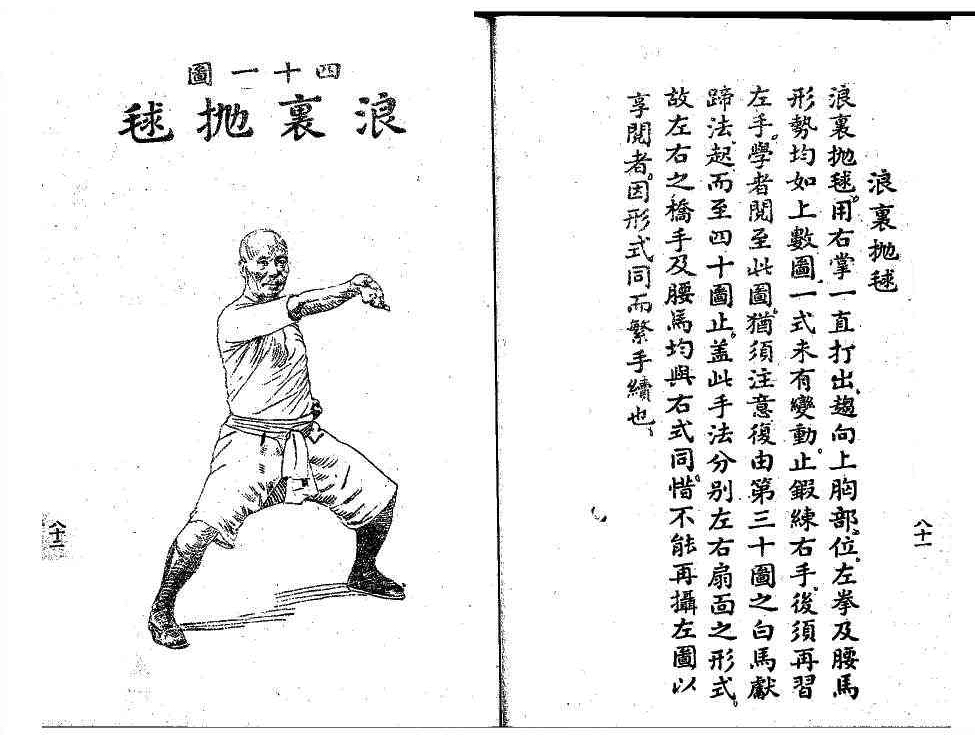 浪裏抛毬
浪裏抛毬。用右掌一直打出、趨向上胸部位。左拳及腰馬
形勢均如上數圖、一式未有變動。止鍛練右手、後須再習
左手。學者閱至此圖。猶須注意復由第三十圖之白馬獻
蹄法、起而至四十圖止。蓋此手法分别左右扇面之形式。
故左右之橋手及腰馬均與右式同。惜不能再攝左圖以
享閱者。因形式同而繁手續也、
八十一
四十一圖
浪裏抛毬
八十二